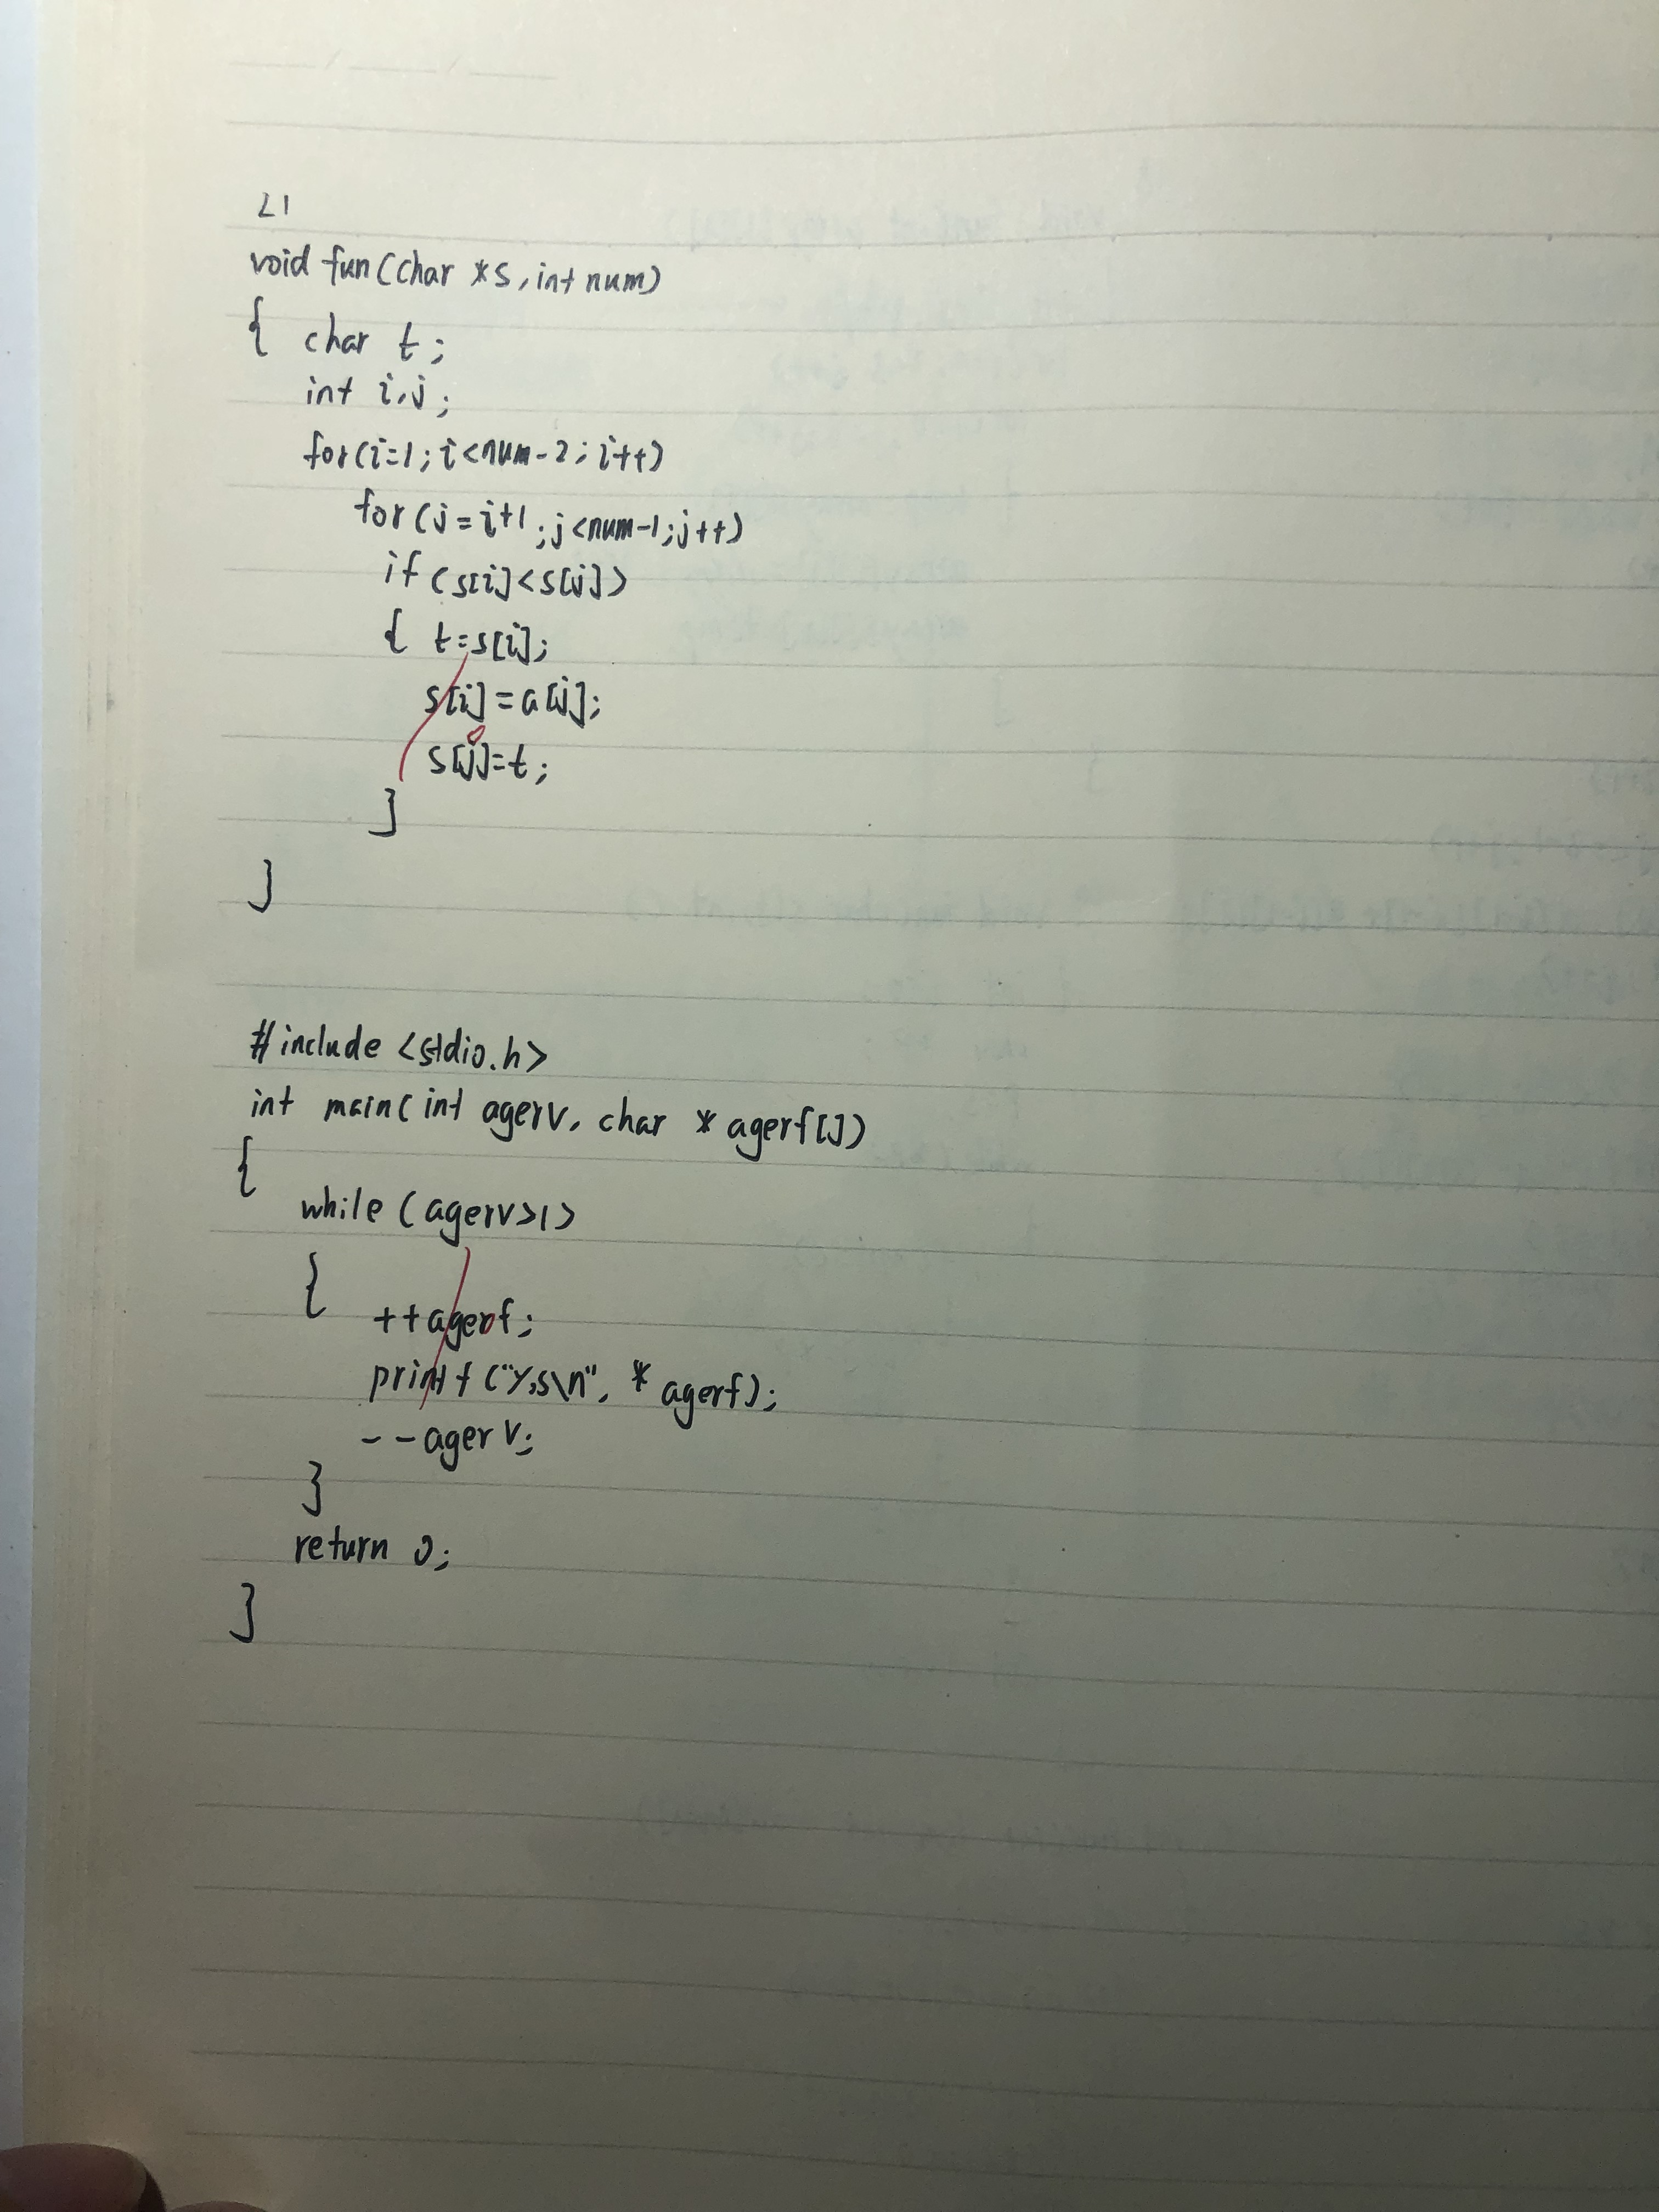 21
void fun(char *s,int num)
{ char t;
int i,j;
for(i=1;i<num-2;i++)
for(j=i+1;j<num-1;j++)
if(s[i]<s[j])
{ t=s[i];
s[i]=a[j];
s[j]=t;
}
}
#include <stdio.h>
int main(int agerv, char *agerf[])
{
while(agerv>1)
{
++agerf;
printf("%s\n", *agerf);
--agerv;
}
return 0;
}